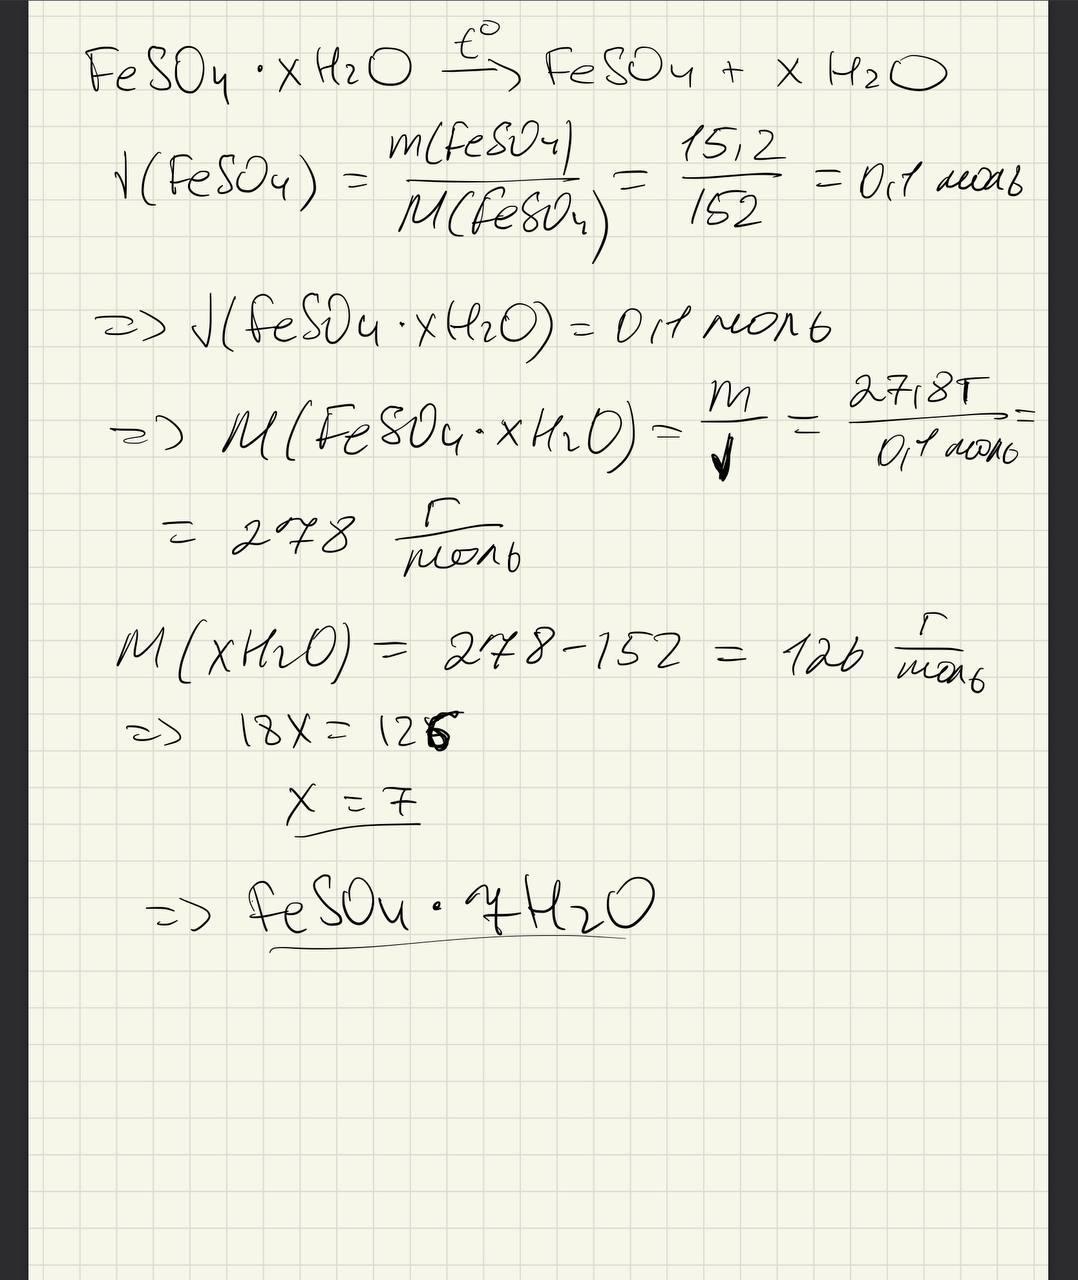 FeSO4 · xH2O —t°→ FeSO4 + xH2O
√(FeSO4) = m(FeSO4) / M(FeSO4) = 15,2 / 152 = 0,1 моль
=> √(FeSO4 · xH2O) = 0,1 моль
=> M(FeSO4 · xH2O) = m / √ = 27,8г / 0,1 моль =
= 278 г / моль
M(xH2O) = 278 - 152 = 126 г / моль
=> 18x = 126
x = 7
=> FeSO4 · 7H2O